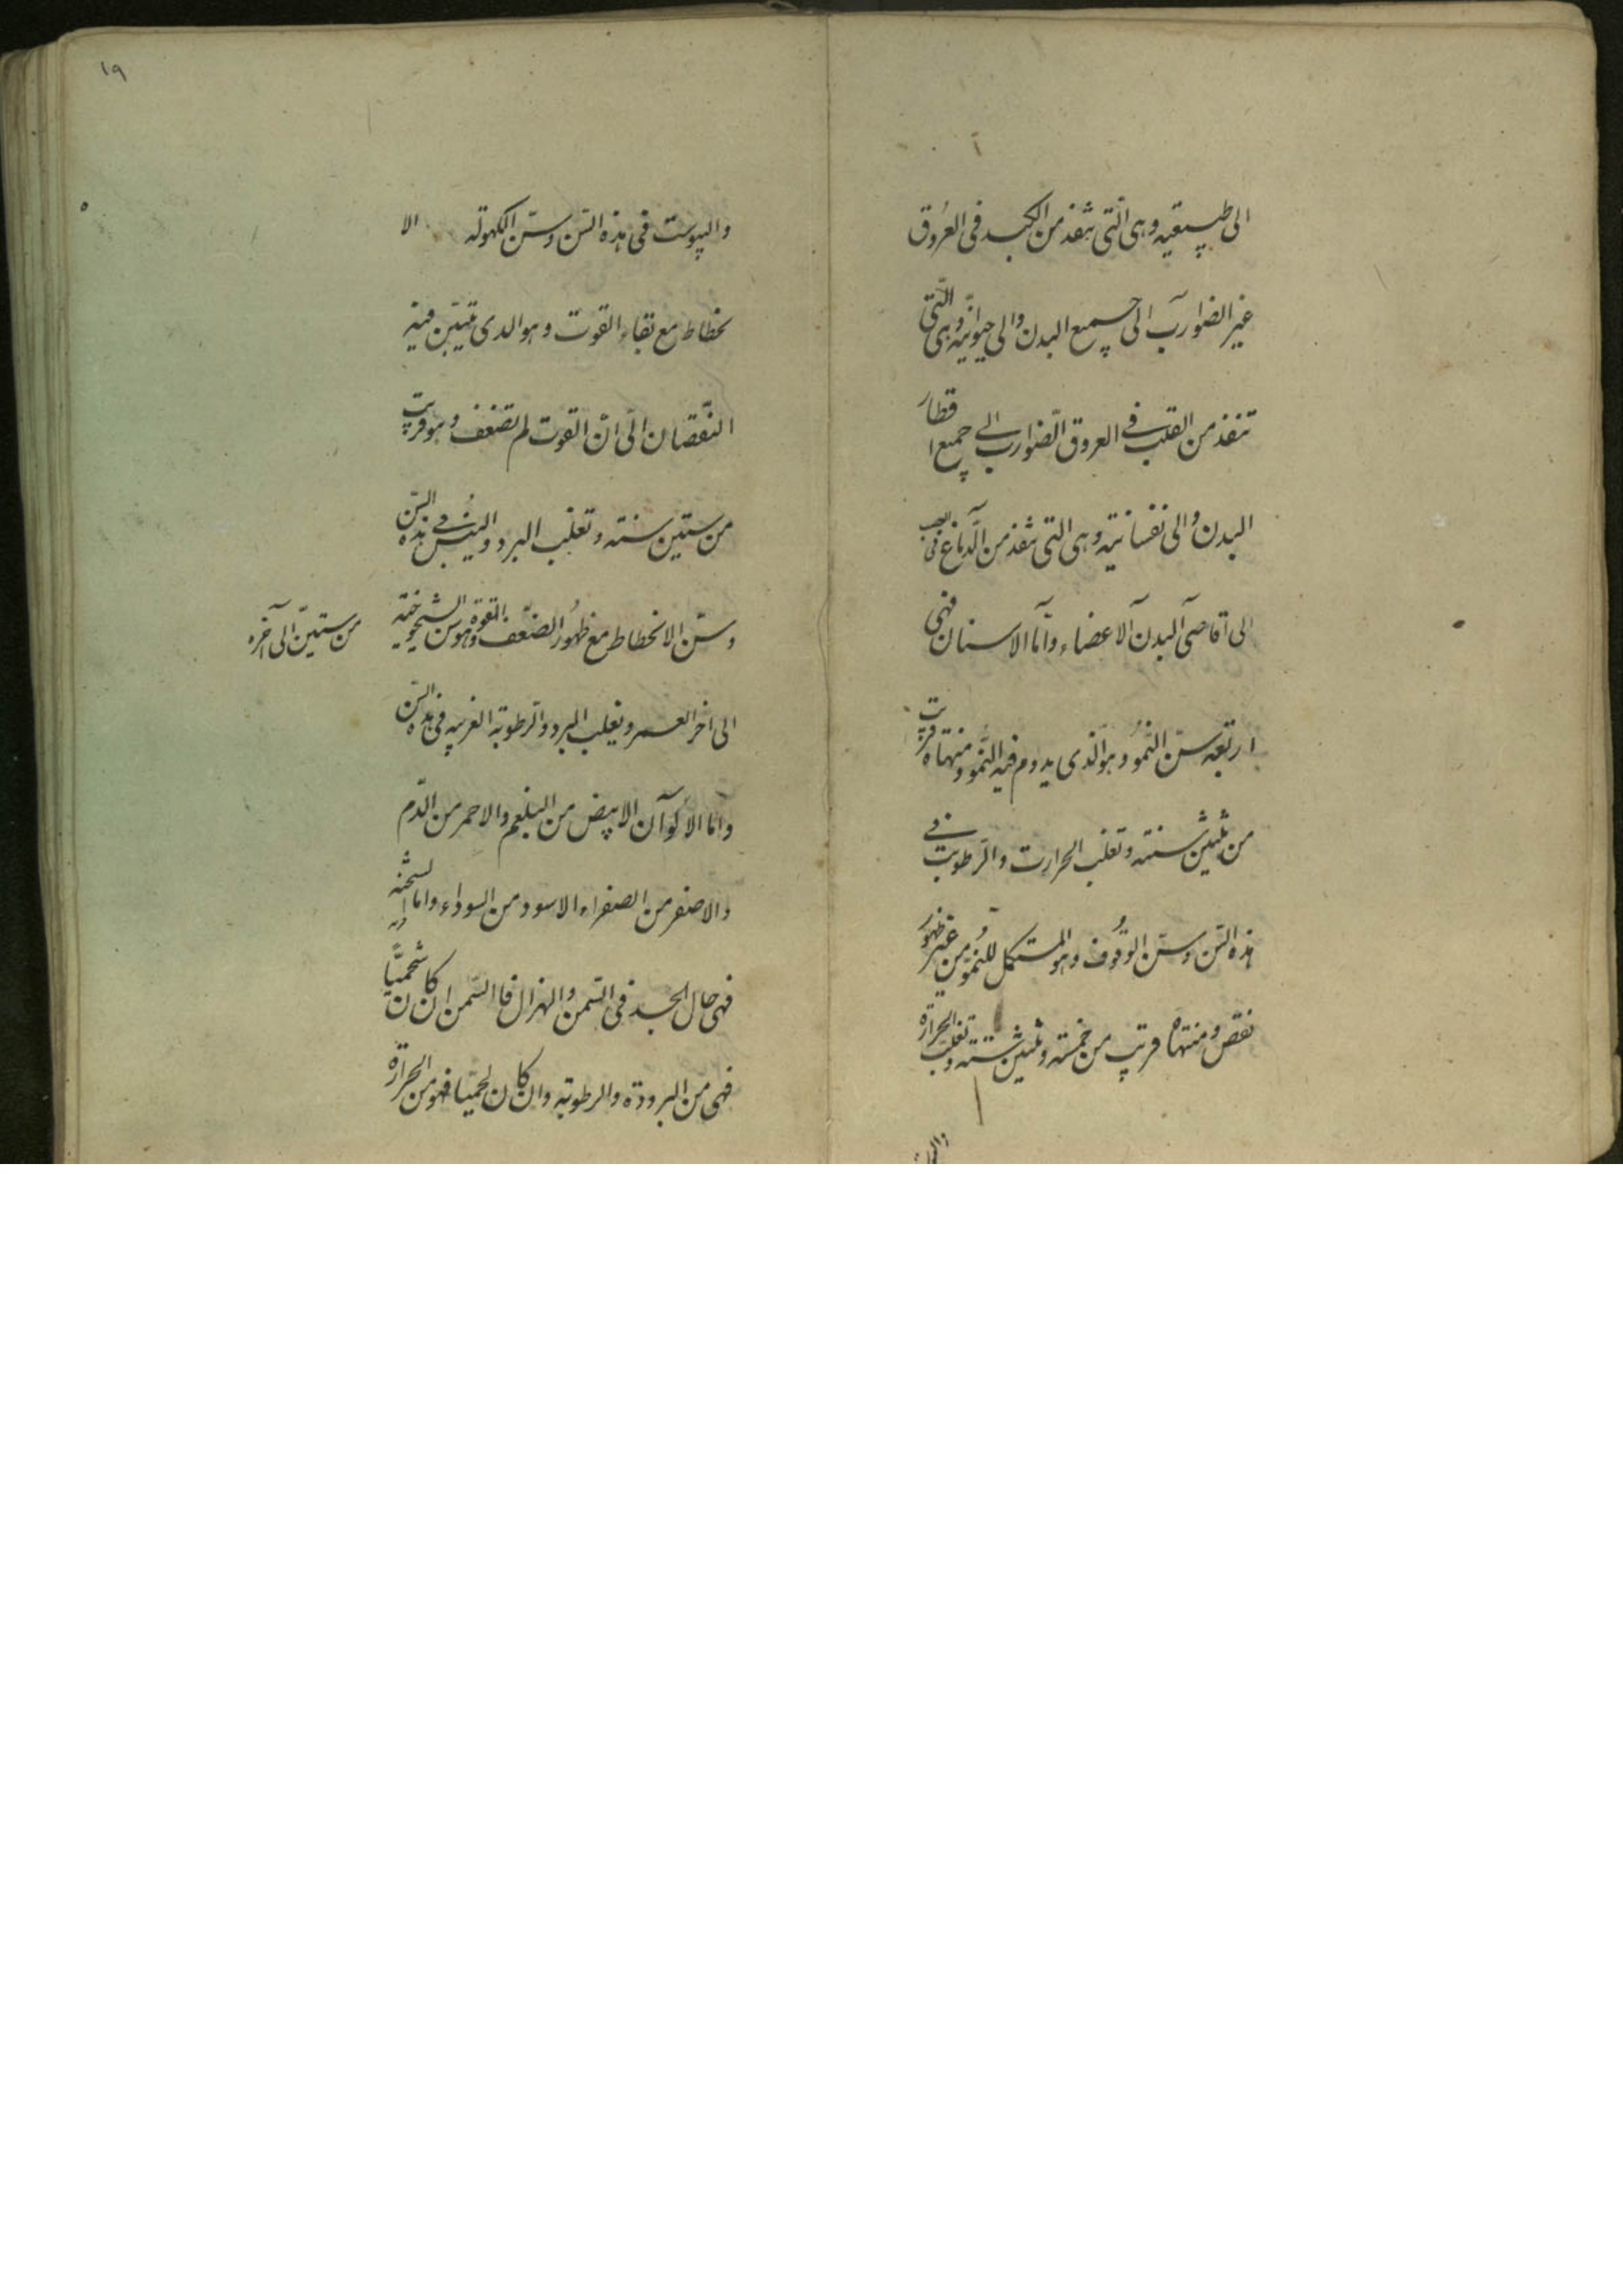 الى طبيعيه وهى الّتى تنفذ من الكبد فى العُروق
غير الضوارب الى جميع البدن والى حيوانيّه وهى الّتى
تنفذ من القلب فى العروق الضوارب الى جميع اقطار
البدن والى نفسانيّه وهى التى تنفذ من الدّماغ فى العصب
الى اقاصى البدن الاعضاء وامّا الاسنان فهى
اربعه سنّ النّموُ وهو الّذى يدوم فيه النّمو ومنتهاه قريب
من ثلثين سنته وتغلب الحرارت والرّطوبت فى
هذه السّن وسنّ الوقُوف وهو المستكمل للنُموّ من غير ظهور
نقص ومنتهاه قريب من خمسته وثلثين سنته وتغلب الحرارة
واليبوست فى هذه السّن وسنّ الكهولة الا
نحطاط مع بقاء القوت وهو الدى تبيّن فيه
النّقصان الّى انّ القوت لم تضعف وهو قريب
من ستين سنته وتغلب البرد واليبُس فى هذه السّن
وسنّ الانحطاط مع ظهُور الضّعف القوة وهو سن الشيخوخيّه
من ستينّ الى آخره
الى اخر العمر ويغلب البرد والرّطوبة الغريبه فى هذه السّن
وامّا الاكوآن الابيض من البلغم والاحمر من الدّم
والاصفر من الصفراء الاسود من السوداء واما السّحنه
فهى حال الجسد فى السّمن والهزال فا السّمن ان كان شحميًّا
فهى من البرودة والرطوبة وان كان لحميّا فهو من الحرارة
١٩